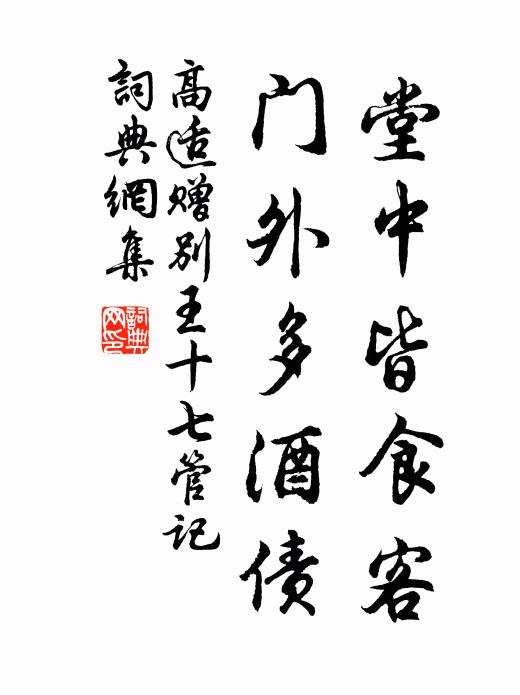 堂中皆食客
门外多酒债
高适赠别王十七管记
詞典網集
詞典网印